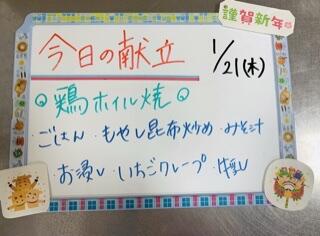 謹賀新年
今日の献立 1/21(木)
鶏ホイル焼
ごはん・もやし昆布炒め・みそ汁
お浸し・いちごクレープ・牛乳